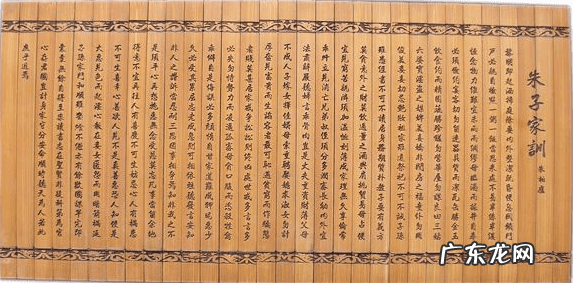 朱子家訓
朱柏廬
黎明即起洒掃庭除要內外整潔既昏便息關鎖門
戶必親自檢點一粥一飯當思來處不易半絲半縷
恆念物力維艱宜未雨而綢繆毋臨渴而掘井自奉
必須儉約宴客切勿留連器具質而潔瓦缶勝金玉
飲食約而精園蔬勝珍饈勿營華屋勿謀良田三姑
六婆實淫盜之媒婢美妾嬌非閨房之福奴僕勿用
俊美妻妾切忌艷妝祖宗雖遠祭祀不可不誠子孫
雖愚經書不可不讀居身務期質樸教子要有義方
莫貪意外之財莫飲過量之酒與肩挑貿易毋占便
宜見窮苦親鄰須加溫恤刻薄成家理無久享倫常
乖舛立見消亡兄弟叔侄須分多潤寡長幼內外宜
法肅辭嚴聽婦言乖骨肉豈是丈夫重資財薄父母
不成人子嫁女擇佳婿毋索重聘娶媳求淑女勿計
厚奩見富貴而生諂容者最可恥遇貧窮而作驕態
者賤莫甚居家戒爭訟訟則終凶處世戒多言言多
必失勿恃勢力而凌逼孤寡毋貪口腹而恣殺牲禽
乖僻自是悔誤必多頹惰自甘家道難成狎昵惡少
久必受其累屈志老成急則可相依輕聽發言安知
非人之譖訴當忍耐三思因事相爭焉知非我之不
是須平心再想施惠無念受恩莫忘凡事當留餘地
得意不宜再往人有喜慶不可生妒忌心人有禍患
不可生喜幸心善欲人見不是真善惡恐人知便是
大惡見色而起淫心報在妻女匿怨而用暗箭禍延
子孫家門和順雖饔飧不繼亦有餘歡國課早完即
囊橐無餘自得至樂讀書志在聖賢非徒科第為官
心存君國豈計身家守分安命順時聽天為人若此
庶乎近焉
广东龙网